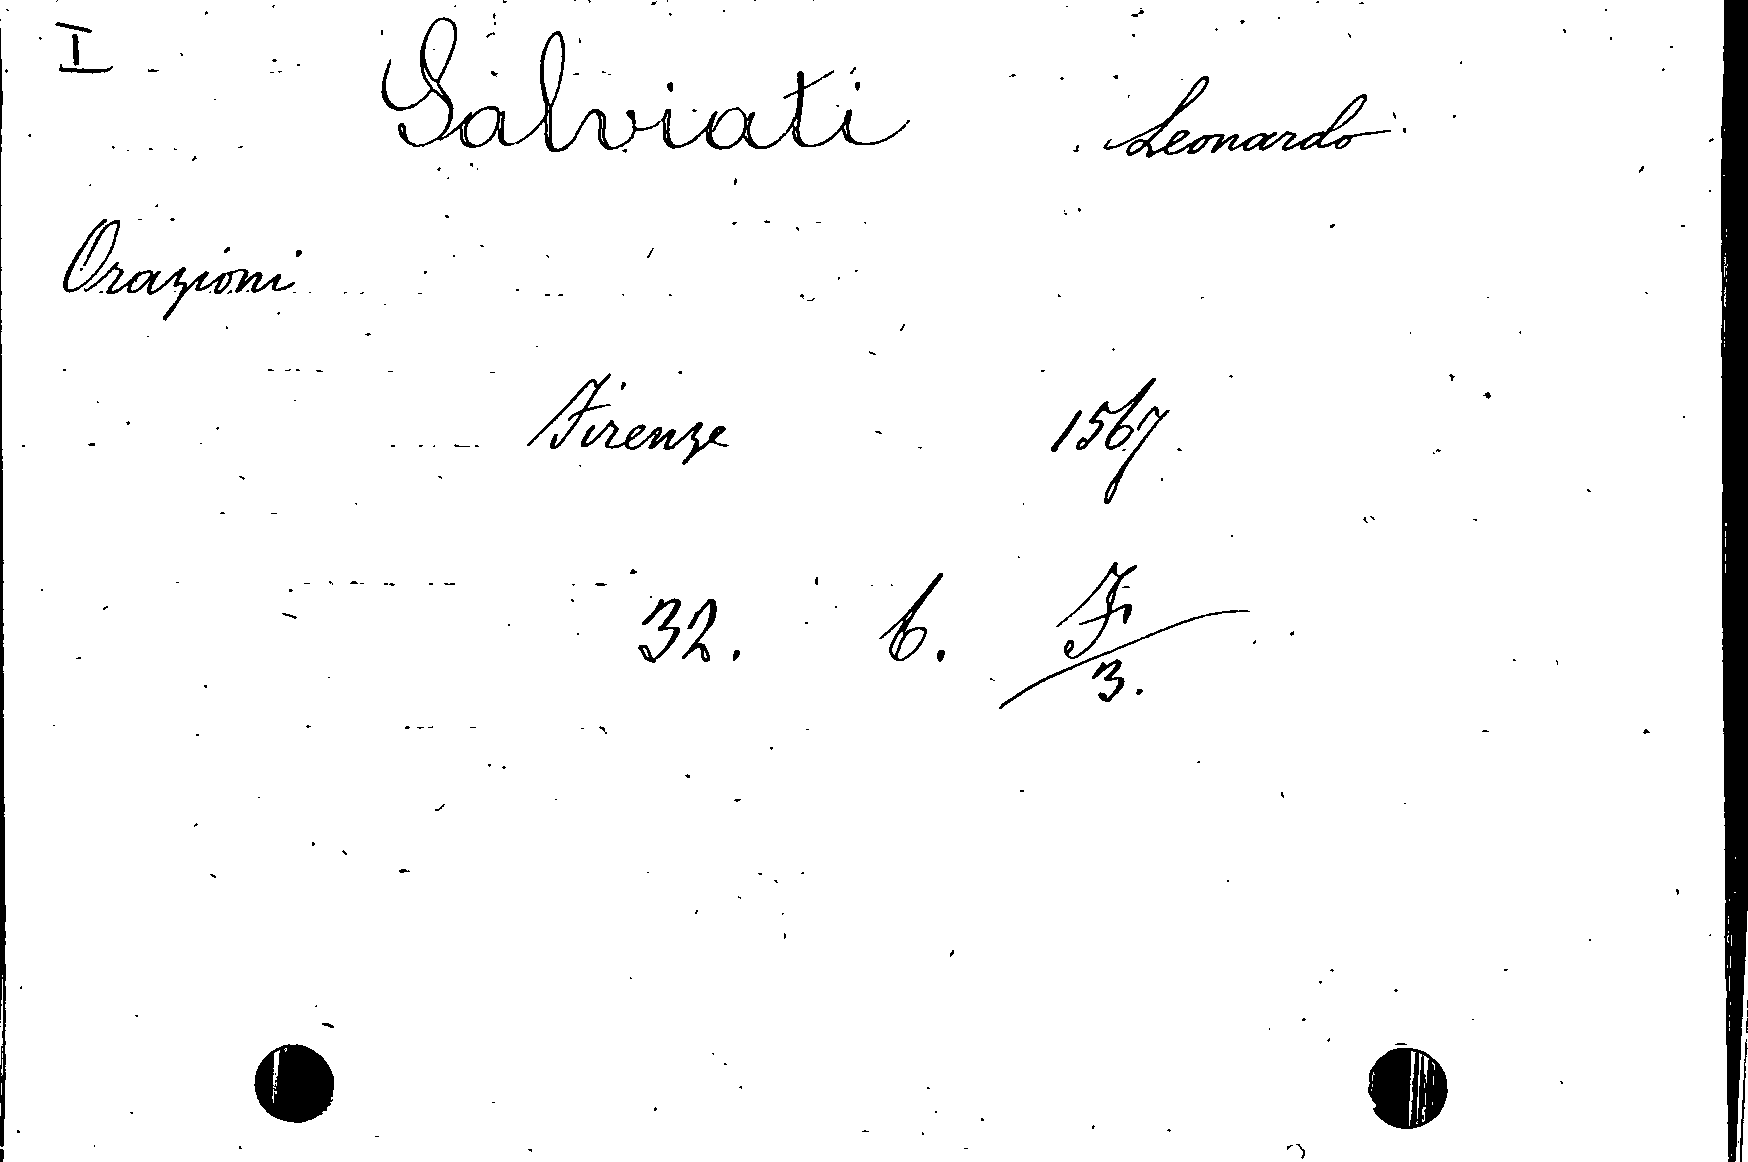 I
Salviati Leonardo
Orazioni
Firenze 1567
32. 6. F/3.